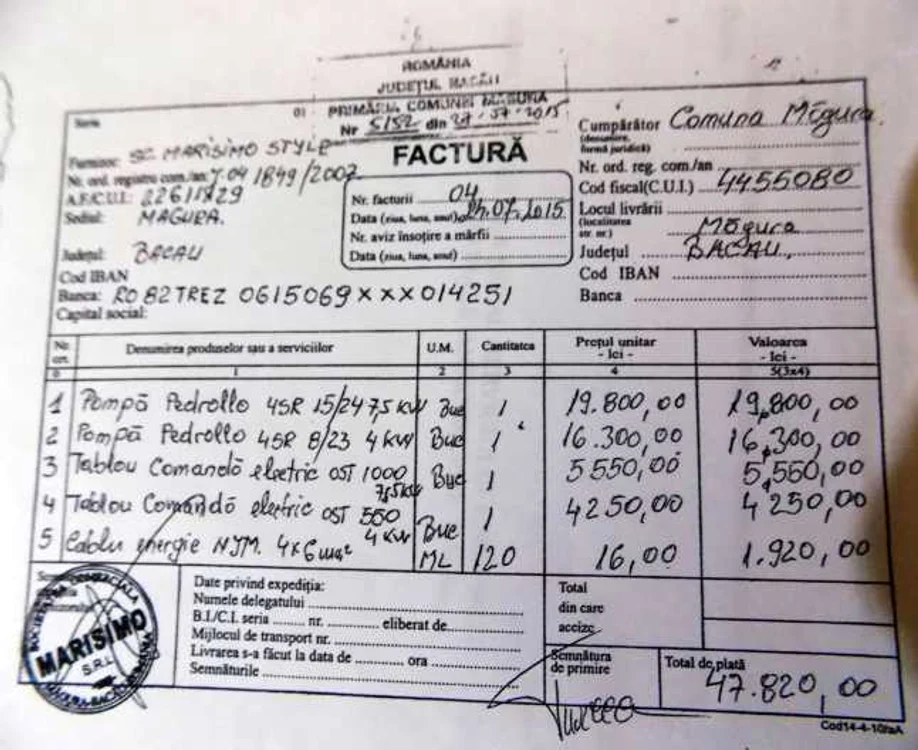 ROMÂNIA
JUDEȚUL BACĂU
PRIMĂRIA COMUNEI MĂGURA
Nr 5152 din 27.07.2015
FACTURĂ
Seria
Furnizor: SC MARISIMO STYLE
Nr. ord. registru com./an: 04 1849/2002
A.F./C.U.I.:
Sediul: MAGURA.
Județul: BACAU
Cod IBAN
Banca: RO 82 TREZ 0615069 XXX014251
Capital social:
Nr. facturii 04
Data (ziua, luna, anul) 24.07.2015
Nr. aviz însoțire a mărfii
Data (ziua, luna, anul)
Cumpărător Comuna Măgura
(denumire, formă juridică)
Nr. ord. reg. com./an
Cod fiscal(C.U.I.) 4455080
Locul livrării
(localitatea str. nr.) Măgura
Județul BACAU,
Cod IBAN
Banca
Nr. crt. Denumirea produselor sau a serviciilor U.M. Cantitatea Prețul unitar - lei - Valoarea - lei -
0 1 2 3 4 5(3x4)
1 Pompă Pedrollo 4SR 15/24 7,5 KW Buc 1 19.800,00 19.800,00
2 Pompă Pedrollo 4SR 8/23 4 KW Buc 1 16.300,00 16.300,00
3 Tablou Comandă electric OST 1000 7,5 KW Buc 1 5 550,00 5.550,00
4 Tablou Comandă electric OST 550 4 KW Buc 1 4250,00 4 250,00
5 Cablu energie NYM. 4x6 ML 120 16,00 1.920,00
SOCIETATEA COMERCIALĂ
MARISIMO
S.R.L.
Date privind expediția:
Numele delegatului
B.I./C.I. seria nr. eliberat de
Mijlocul de transport nr.
Livrarea s-a făcut la data de ora
Semnăturile
Total
din care
accize
Semnătura de primire
Total de plată
47.820,00
Cod14-4-10/aA